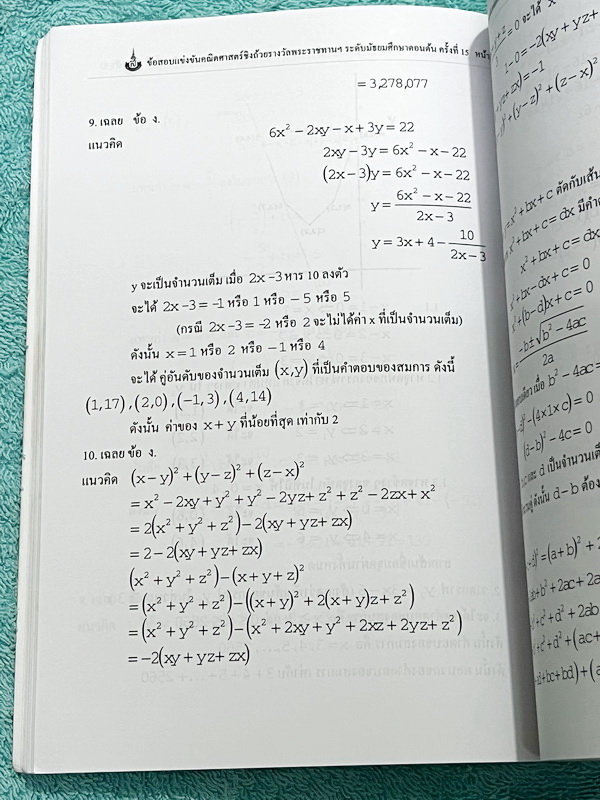 ข้อสอบแข่งขันคณิตศาสตร์ชิงถ้วยรางวัลพระราชทานฯ ระดับมัธยมศึกษาตอนต้น ครั้งที่ 15 หน้า
= 3,278,077
9. เฉลย ข้อ ง.
แนวคิด 6x² − 2xy − x + 3y = 22
2xy − 3y = 6x² − x − 22
(2x − 3)y = 6x² − x − 22
y = (6x² − x − 22)/(2x − 3)
y = 3x + 4 − 10/(2x − 3)
y จะเป็นจำนวนเต็ม เมื่อ 2x − 3 หาร 10 ลงตัว
จะได้ 2x − 3 = −1 หรือ 1 หรือ − 5 หรือ 5
(กรณี 2x − 3 = −2 หรือ 2 จะไม่ได้ค่า x ที่เป็นจำนวนเต็ม)
ดังนั้น x = 1 หรือ 2 หรือ −1 หรือ 4
จะได้ คู่อันดับของจำนวนเต็ม (x,y) ที่เป็นคำตอบของสมการ ดังนี้
(1,17) , (2,0) , (−1, 3) , (4,14)
ดังนั้น ค่าของ x + y ที่น้อยที่สุด เท่ากับ 2
10. เฉลย ข้อ ง.
แนวคิด (x − y)² + (y − z)² + (z − x)²
= x² − 2xy + y² + y² − 2yz + z² + z² − 2zx + x²
= 2(x² + y² + z²) − 2(xy + yz + zx)
= 2 − 2(xy + yz + zx)
(x² + y² + z²) − (x + y + z)²
= (x² + y² + z²) − ((x + y)² + 2(x + y)z + z²)
= (x² + y² + z²) − (x² + 2xy + y² + 2xz + 2yz + z²)
= −2(xy + yz + zx)
= 0 จะได้
1 − 0 = −2(xy + yz +
yz + zx) = −1
)² + (y − z)² + (z − x)²
= x² + bx + c ตัดกับเส้น
x² + bx + c = dx มีคำต
x² + bx + c = dx
x² + bx − dx + c = 0
x² + (b − d)x + c = 0
−b ± √(b² − 4ac)
2a
เมื่อ b² − 4ac =
)² − (4×1×c) = 0
(d − b)² − 4c = 0
และ d เป็นจำนวนเต็
ดังนั้น d − b ต้อง
)² = (a + b)² + 2
+ b² + 2ac + 2a
+ c² + d² + 2ab
+ c² + d² + (ac +
+ bc + bd) + (a